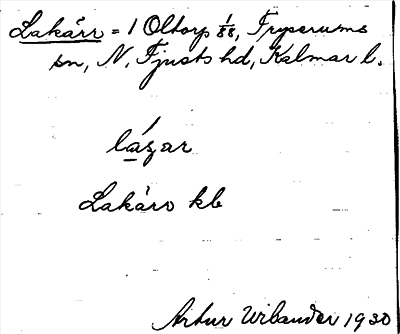 Lakärr = 1 Oltorp 1/88, Fryserums
sn, N. Tjusts hd, Kalmar l.
lázar
Lakärr kb
Artur Wibander 1930